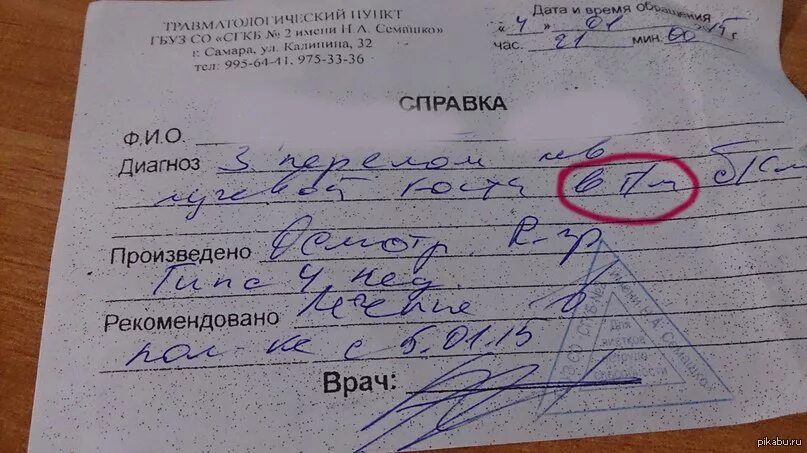 ТРАВМАТОЛОГИЧЕСКИЙ ПУНКТ
ГБУЗ СО «СГКБ № 2 имени Н.А. Семашко»
г. Самара, ул. Калинина, 32
тел: 995-64-41, 975-33-36
Дата и время обращения
« 4 » 01 15 г.
час. 21 мин. 00
СПРАВКА
Ф.И.О.
Диагноз З перелом лев
лучевой кости в п/м б/см
Произведено Осмотр. R-гр
Гипс 4 нед.
Рекомендовано Лечение в
пол-ке с 5.01.15
Врач:
имени Н.А. Семашко
Для
pikabu.ru